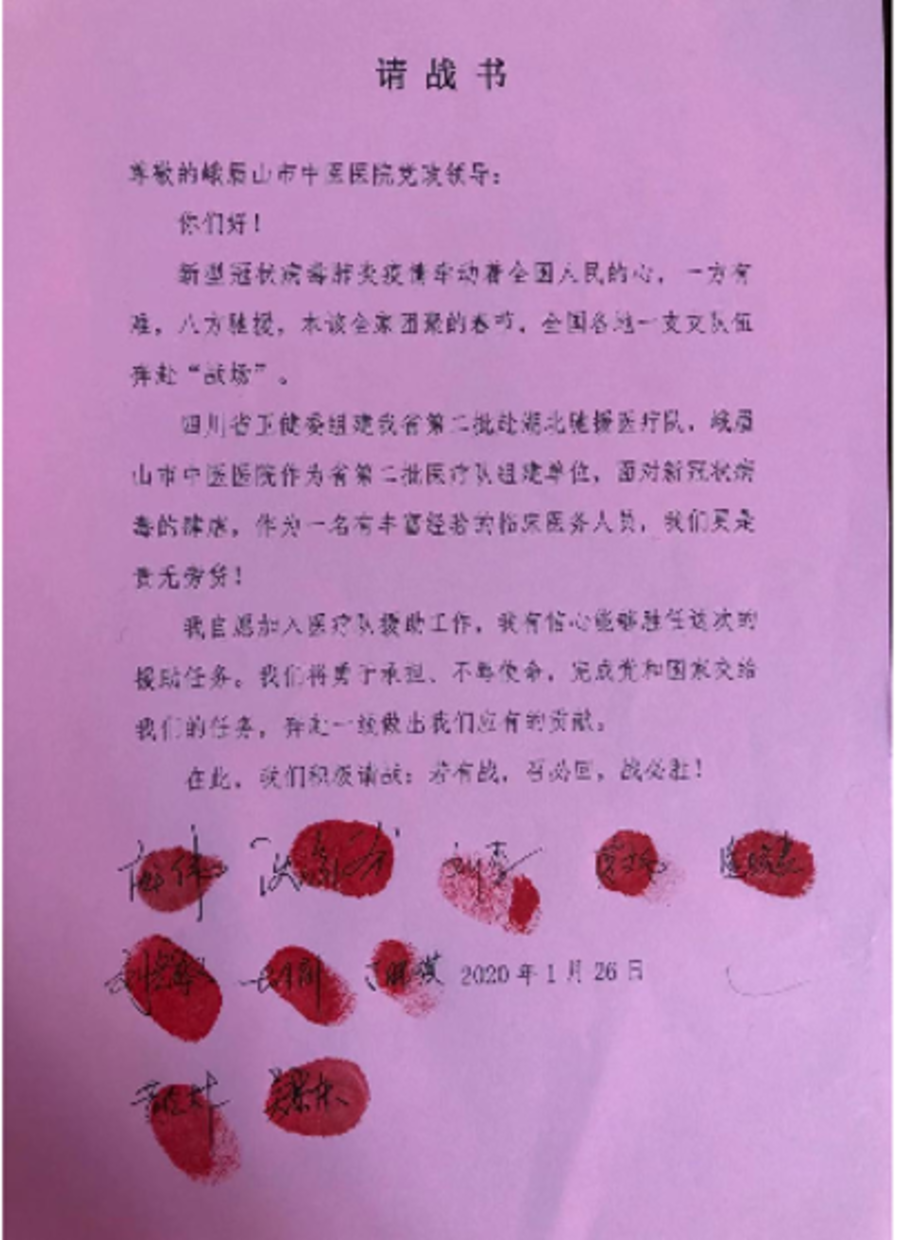 请战书
尊敬的峨眉山市中医医院党政领导：
你们好！
新型冠状病毒肺炎疫情牵动着全国人民的心，一方有
难，八方驰援，本该全家团聚的春节，全国各地一支支队伍
奔赴“战场”。
四川省卫健委组建我省第二批赴湖北驰援医疗队，峨眉
山市中医医院作为省第二批医疗队组建单位，面对新冠状病
毒的肆虐，作为一名有丰富经验的临床医务人员，我们更是
责无旁贷！
我自愿加入医疗队援助工作，我有信心能够胜任这次的
援助任务。我们将勇于承担、不辱使命，完成党和国家交给
我们的任务，奔赴一线做出我们应有的贡献。
在此，我们积极请战：若有战，召必回，战必胜！
2020年1月26日